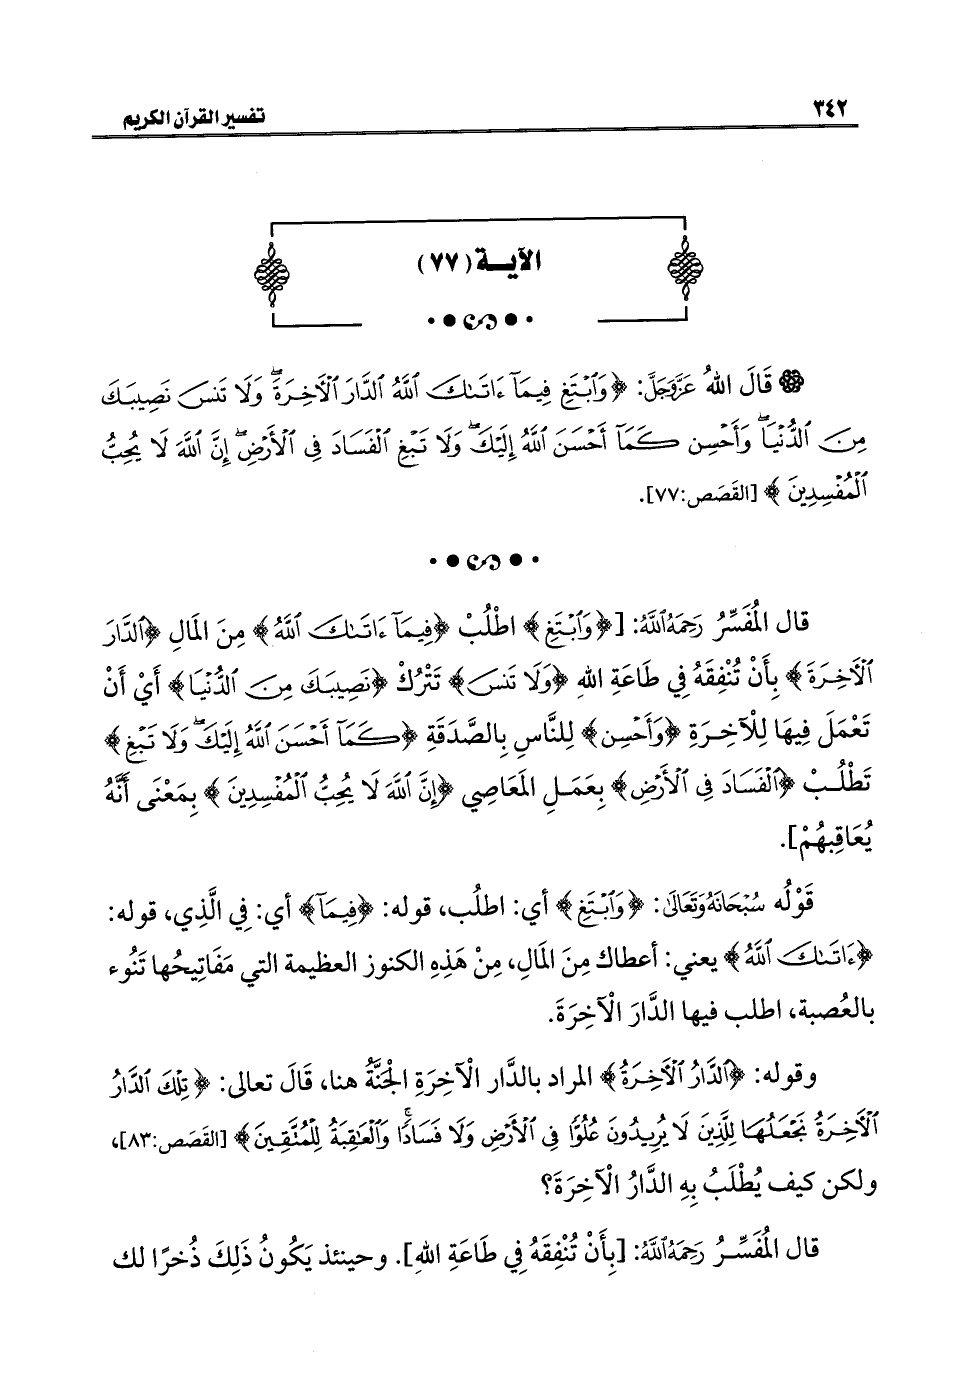 ٣٤٢
تفسير القرآن الكريم
الآيــة (٧٧)
قَالَ اللهُ عَزَّوَجَلَّ: ﴿وَٱبْتَغِ فِيمَآ ءَاتَىٰكَ ٱللَّهُ ٱلدَّارَ ٱلْأَخِرَةَۖ وَلَا تَنسَ نَصِيبَكَ
مِنَ ٱلدُّنْيَاۖ وَأَحْسِن كَمَآ أَحْسَنَ ٱللَّهُ إِلَيْكَۖ وَلَا تَبْغِ ٱلْفَسَادَ فِى ٱلْأَرْضِۖ إِنَّ ٱللَّهَ لَا يُحِبُّ
ٱلْمُفْسِدِينَ﴾ [القَصَص:٧٧].
قال المُفَسِّرُ رَحِمَهُ ٱللَّهُ: [﴿وَٱبْتَغِ﴾ اطْلُبْ ﴿فِيمَآ ءَاتَىٰكَ ٱللَّهُ﴾ مِنَ المَالِ ﴿ٱلدَّارَ
ٱلْأَخِرَةَ﴾ بِأَنْ تُنْفِقَهُ فِي طَاعَةِ اللهِ ﴿وَلَا تَنسَ﴾ تَتْرُكْ ﴿نَصِيبَكَ مِنَ ٱلدُّنْيَا﴾ أَيْ أَنْ
تَعْمَلَ فِيهَا لِلْآخِرَةِ ﴿وَأَحْسِن﴾ لِلنَّاسِ بِالصَّدَقَةِ ﴿كَمَآ أَحْسَنَ ٱللَّهُ إِلَيْكَۖ وَلَا تَبْغِ﴾
تَطْلُبْ ﴿ٱلْفَسَادَ فِى ٱلْأَرْضِ﴾ بِعَمَلِ المَعَاصِي ﴿إِنَّ ٱللَّهَ لَا يُحِبُّ ٱلْمُفْسِدِينَ﴾ بِمَعْنَى أَنَّهُ
يُعَاقِبهُمْ].
قَوْلُه سُبْحَانَهُ وَتَعَالَى: ﴿وَٱبْتَغِ﴾ أي: اطلُب، قوله: ﴿فِيمَآ﴾ أي: فِي الَّذِي، قوله:
﴿ءَاتَىٰكَ ٱللَّهُ﴾ يعني: أعطاك مِنَ المَالِ، مِنْ هَذِهِ الكنوز العظيمة التي مَفَاتِيحُها تَنُوء
بالعُصبة، اطلب فيها الدَّارَ الْآخِرَةَ.
وقوله: ﴿ٱلدَّارُ ٱلْأَخِرَةُ﴾ المراد بالدَّار الْآخِرَةِ الجَنَّةُ هنا، قَالَ تعالى: ﴿تِلْكَ ٱلدَّارُ
ٱلْأَخِرَةُ نَجْعَلُهَا لِلَّذِينَ لَا يُرِيدُونَ عُلُوًّا فِى ٱلْأَرْضِ وَلَا فَسَادًاۚ وَٱلْعَٰقِبَةُ لِلْمُتَّقِينَ﴾ [القَصَص:٨٣]،
ولكن كيف يُطْلَبُ بِهِ الدَّارُ الْآخِرَةَ؟
قال المُفَسِّرُ رَحِمَهُ ٱللَّهُ: [بِأَنْ تُنْفِقَهُ فِي طَاعَةِ اللهِ]. وحينئذ يَكُونُ ذَلِكَ ذُخرًا لك